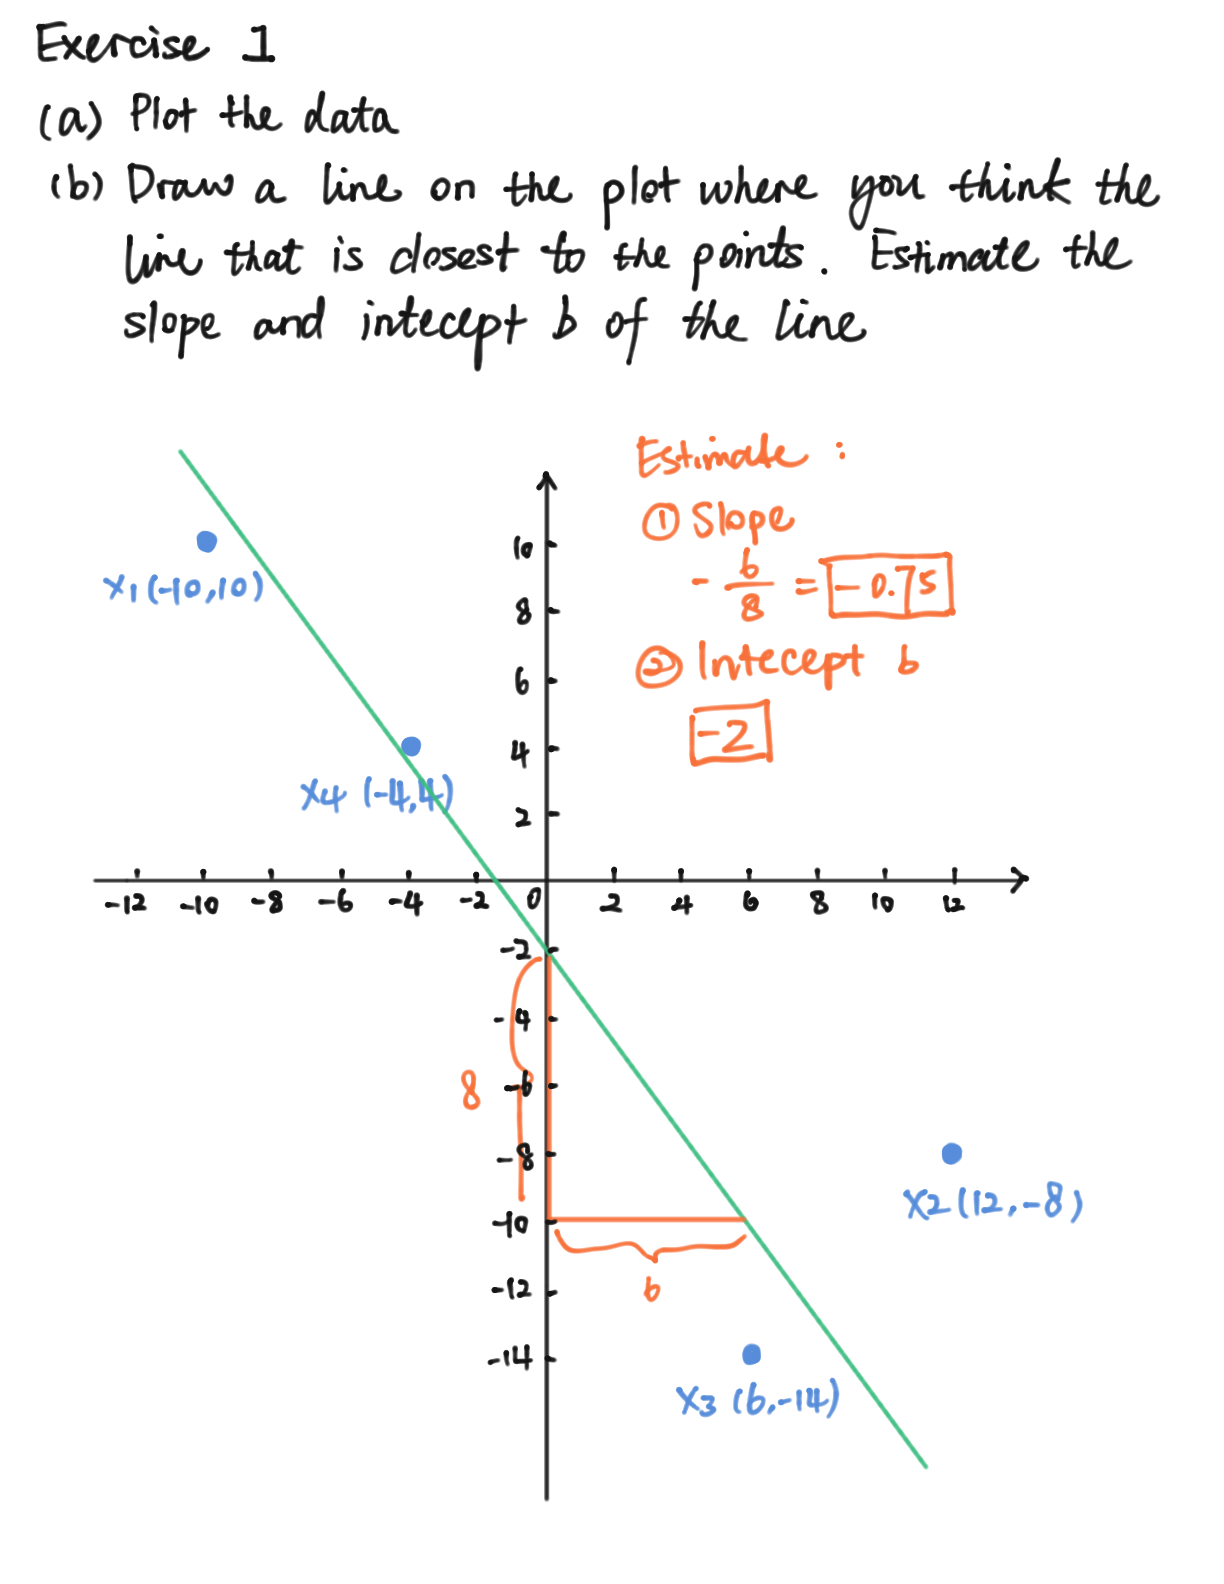 Exercise 1
(a) Plot the data
(b) Draw a line on the plot where you think the
line that is closest to the points. Estimate the
slope and intecept b of the line
Estimate :
① Slope
- 6/8 = -0.75
② Intecept b
-2
10
8
6
4
2
X1 (-10,10)
X4 (-4,4)
-12 -10 -8 -6 -4 -2 0 2 4 6 8 10 12
-2
-4
-6
-8
-10
-12
-14
8
6
X2 (12,-8)
X3 (6,-14)